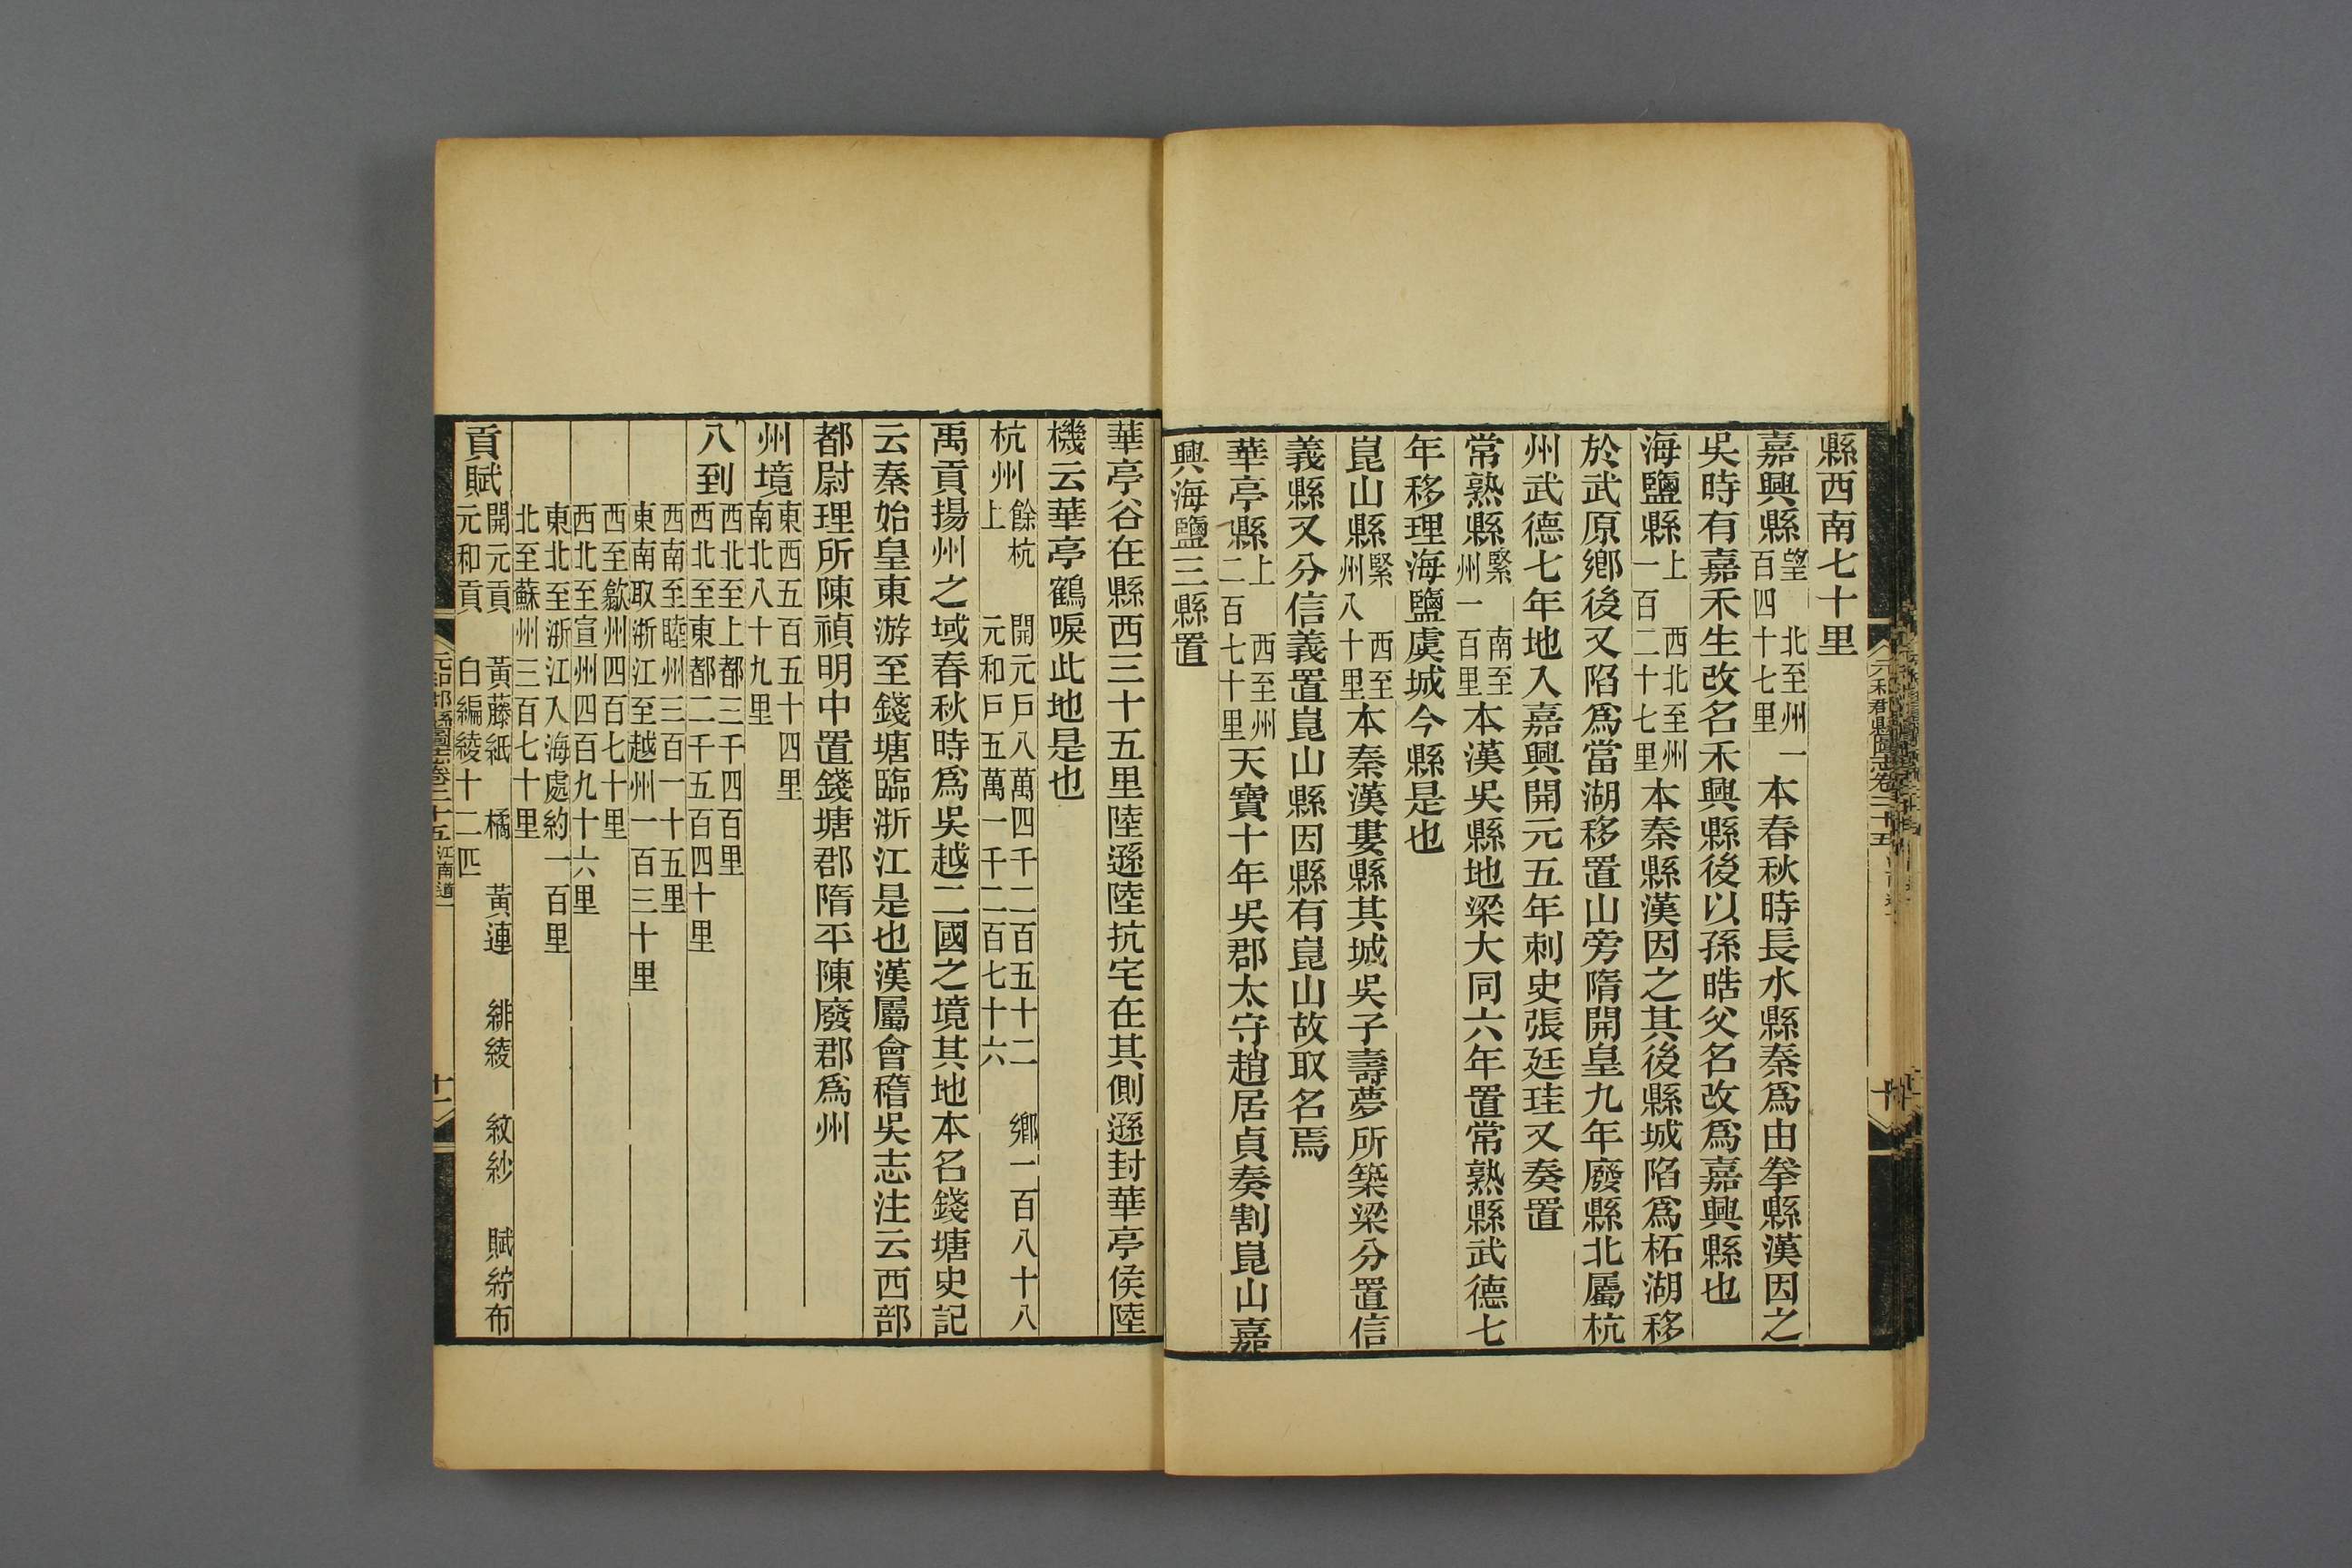 縣西南七十里
嘉興縣望 北至州一百四十七里本春秋時長水縣秦爲由拳縣漢因之
吳時有嘉禾生改名禾興縣後以孫晧父名改爲嘉興縣也
海鹽縣上 西北至州一百二十七里本秦縣漢因之其後縣城陷爲柘湖移
於武原鄉後又陷爲當湖移置山旁隋開皇九年廢縣北屬杭
州武德七年地入嘉興開元五年刺史張廷珪又奏置
常熟縣緊 南至州一百里本漢吳縣地梁大同六年置常熟縣武德七
年移理海鹽虞城今縣是也
崑山縣緊 西至州八十里本秦漢婁縣其城吳子壽夢所築梁分置信
義縣又分信義置崑山縣因縣有崑山故取名焉
華亭縣上 西至州二百七十里天寶十年吳郡太守趙居貞奏割崑山嘉
興海鹽三縣置
元和郡縣圖志卷二十五
十
華亭谷在縣西三十五里陸遜陸抗宅在其側遜封華亭侯陸
機云華亭鶴唳此地是也
杭州餘杭上 開元戶八萬四千二百五十二 鄉一百八十八 元和戶五萬一千二百七十六
禹貢揚州之域春秋時爲吳越二國之境其地本名錢塘史記
云秦始皇東游至錢塘臨浙江是也漢屬會稽吳志注云西部
都尉理所陳禎明中置錢塘郡隋平陳廢郡爲州
州境東西五百五十四里南北八十九里
八到西北至上都三千四百里西北至東都二千五百四十里
西南至睦州三百一十五里東南取浙江至越州一百三十里
西至歙州四百七十里西北至宣州四百九十六里
東北至浙江入海處約一百里北至蘇州三百七十里
貢賦開元貢 黃藤紙 橘 黃連 緋綾 紋紗 賦紵布 元和貢 白編綾十二匹
元和郡縣圖志卷二十五 江南道一
十一